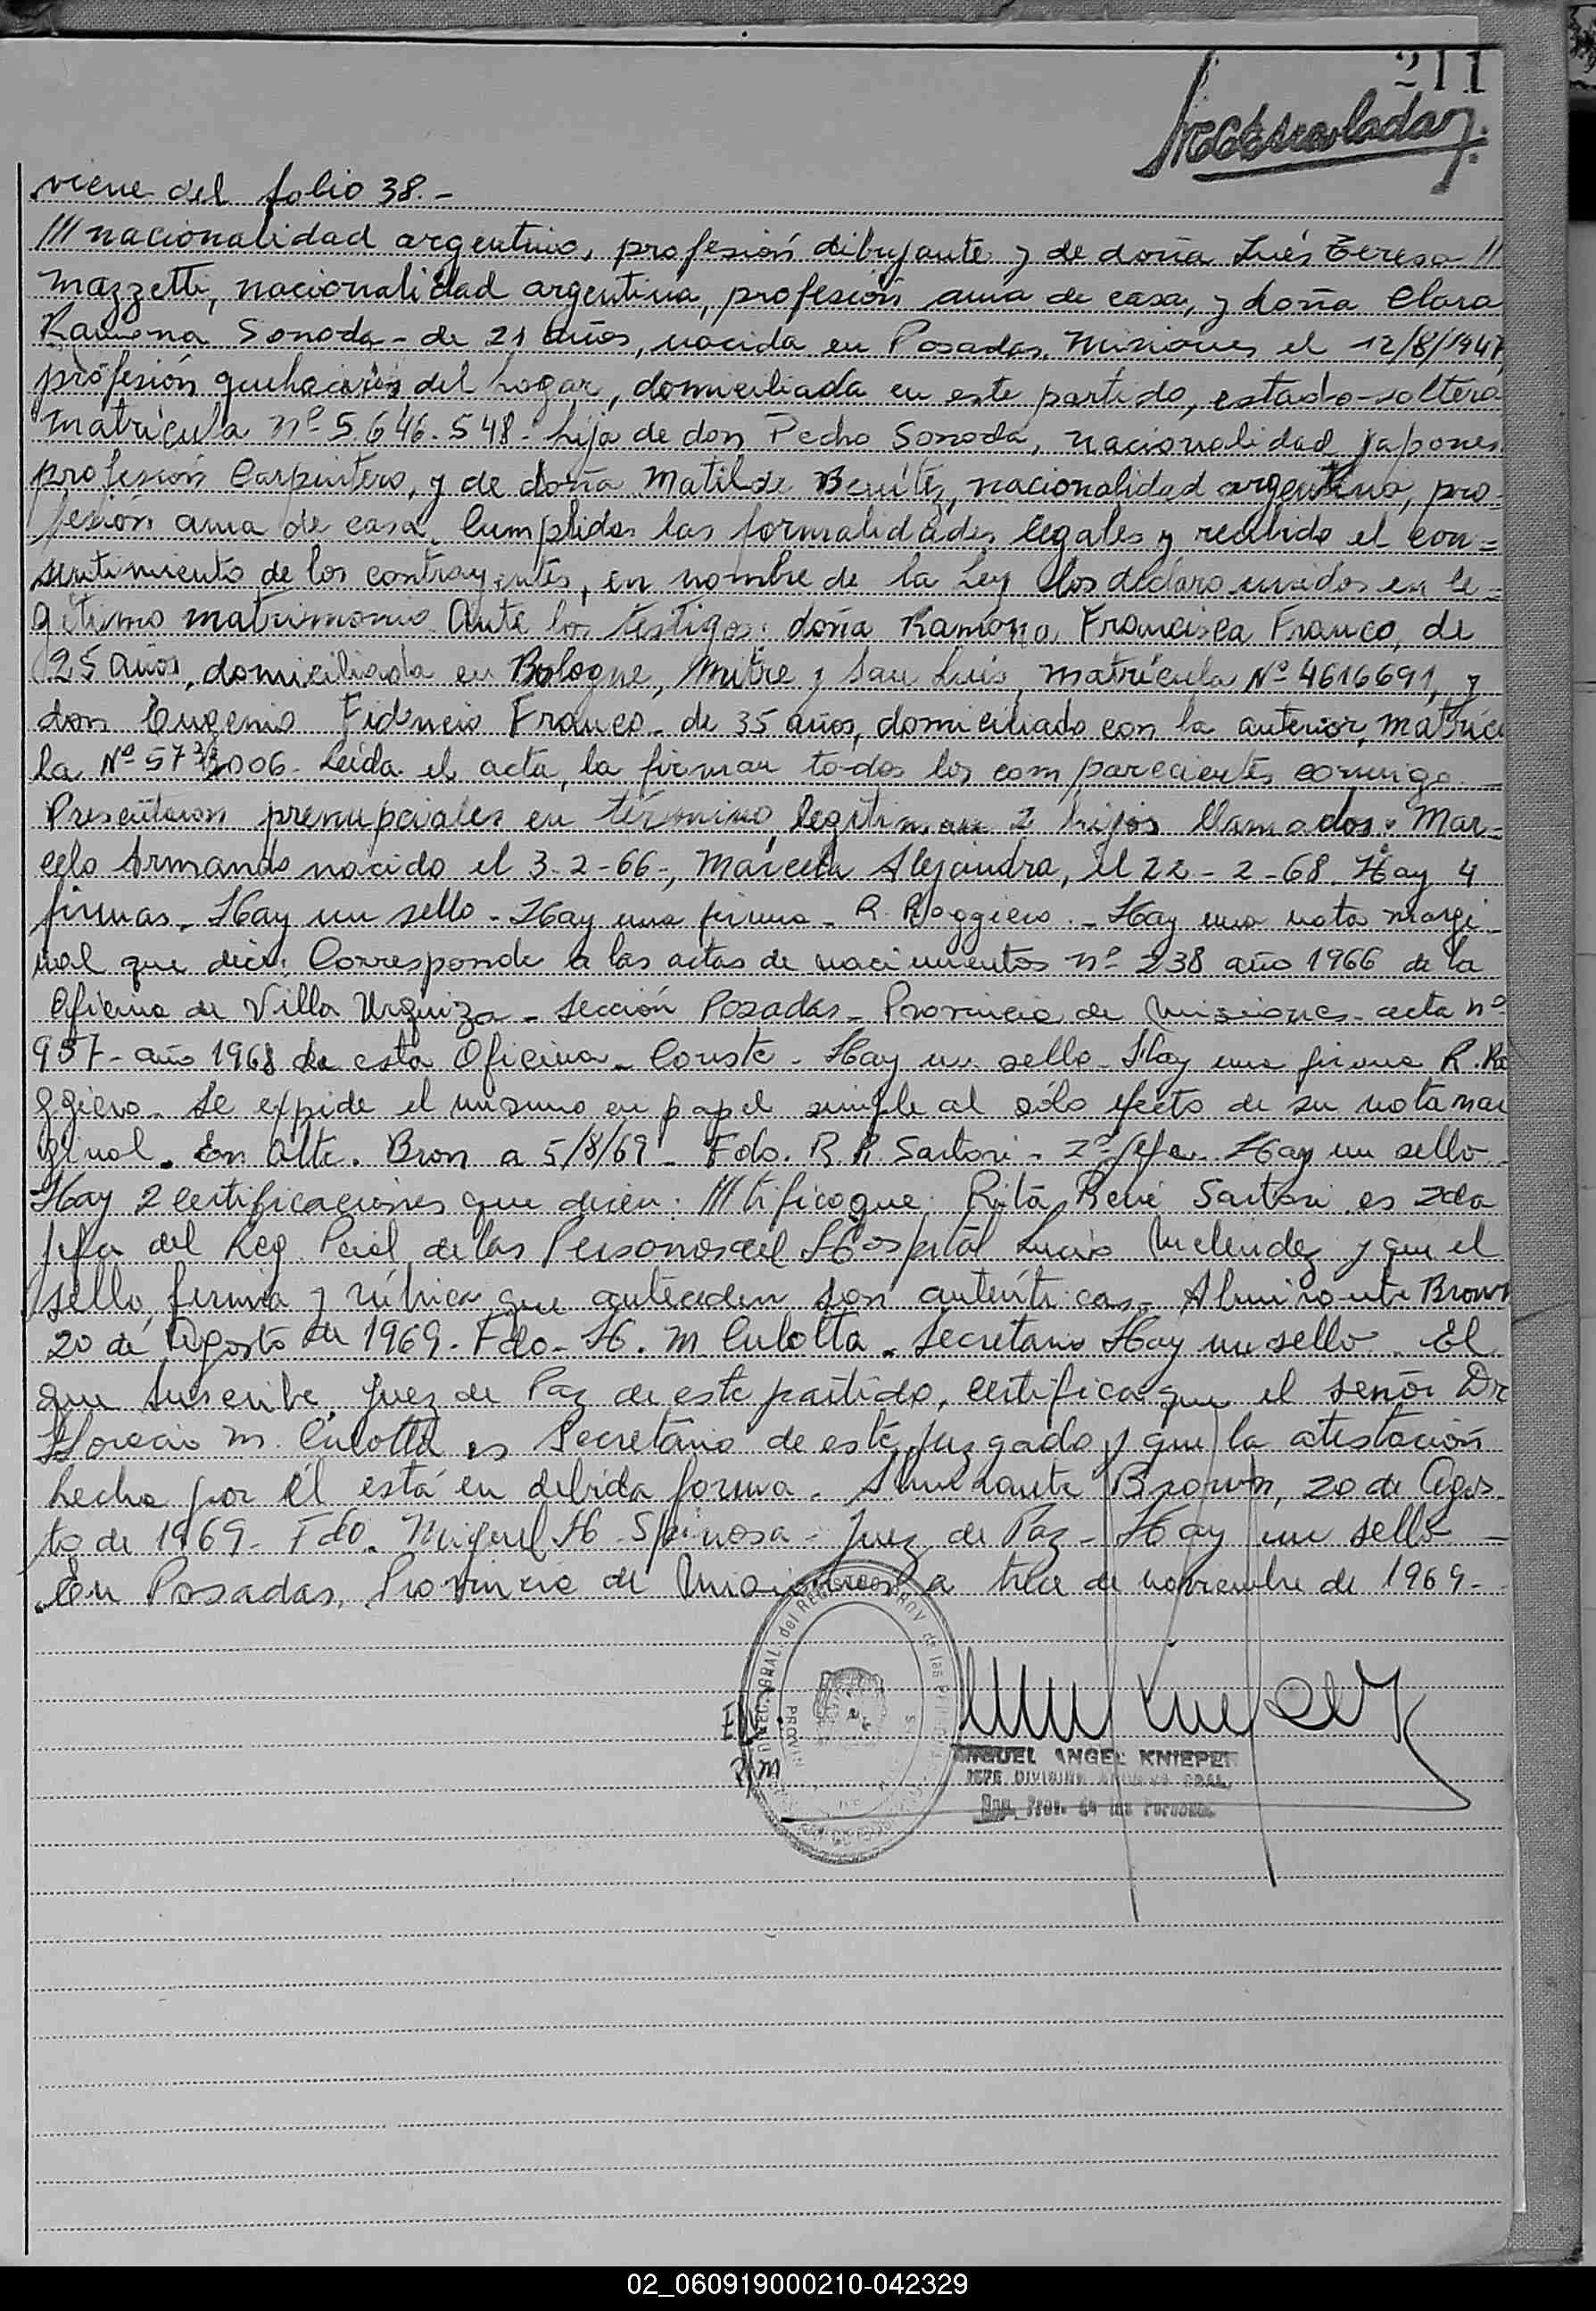 211
viene del folio 38.-
/// nacionalidad argentino, profesión dibujante y de doña Inés Teresa //
Mazzetti, nacionalidad argentina, profesión ama de casa, y doña Clara
Ramona Sonoda - de 21 años, nacida en Posadas, Misiones el 12/8/1947,
profesión quehaceres del hogar, domiciliada en este partido, estado soltera
matrícula nº 5.646.548 - hija de don Pedro Sonoda, nacionalidad japones
profesión Carpintero, y de doña Matilde Benítez, nacionalidad argentina, pro-
fesión ama de casa. Cumplidas las formalidades legales y recibido el con=
sentimiento de los contrayentes, en nombre de la Ley los declaro unidos en le=
gítimo matrimonio. Ante los testigos: doña Ramona Francisca Franco, de
25 años, domiciliada en Bologne, Mitre y San Luis, matrícula Nº 4616691, y
don Eugenio Fidencio Franco - de 35 años, domiciliado con la anterior, matrícu
la Nº Leída el acta, la firman todos los comparecientes conmigo.-
Presentaron prenupciales en término, legitiman 2 hijos llamados: Mar=
celo Armando nacido el 3-2-66-, Marcela Alejandra, el 22-2-68. Hay 4
firmas. Hay un sello - Hay una firma - R. Roggiero.- Hay una nota margi-
nal que dice: Corresponde a las actas de nacimientos nº 238 año 1966 de la
Oficina de Villa Urquiza - Sección Posadas - Provincia de Misiones - acta nº
957 - año 1968 de esta Oficina - Conste - Hay un sello - Hay una firma R. Ro
ggiero - Se expide el mismo en papel simple al sólo efecto de su nota mar
ginal. En Alte. Bron a 5/8/69 - Fdo. R. R. Sartori - 2º Jefe - Hay un sello-
Hay 2 certificaciones que dicen: ///tifico que: Rita René Sartori es 2da
jefa del Reg. Pcial de las Personas del Hospital Lucio Melendez y que el
sello, firma y rúbrica que anteceden son auténticas - Almirante Brown
20 de Agosto de 1969 - Fdo - H. M. Culotta - Secretario Hay un sello - El
que suscribe, Juez de Paz de este partido, certifica que el señor Dr
Horacio M. Culotta es Secretario de este juzgado y que la atestación
hecha por él está en debida forma. Almirante Brown, 20 de Agos-
to de 1969 - Fdo. Miguel H. Spinosa - Juez de Paz - Hay un sello -
En Posadas, Provincia de Misiones a trece de noviembre de 1969.-
MIGUEL ANGEL KNIEPER
JEFE DIVISION ARCHIVO GRAL.
Reg. Prov. de las Personas
02_060919000210-042329